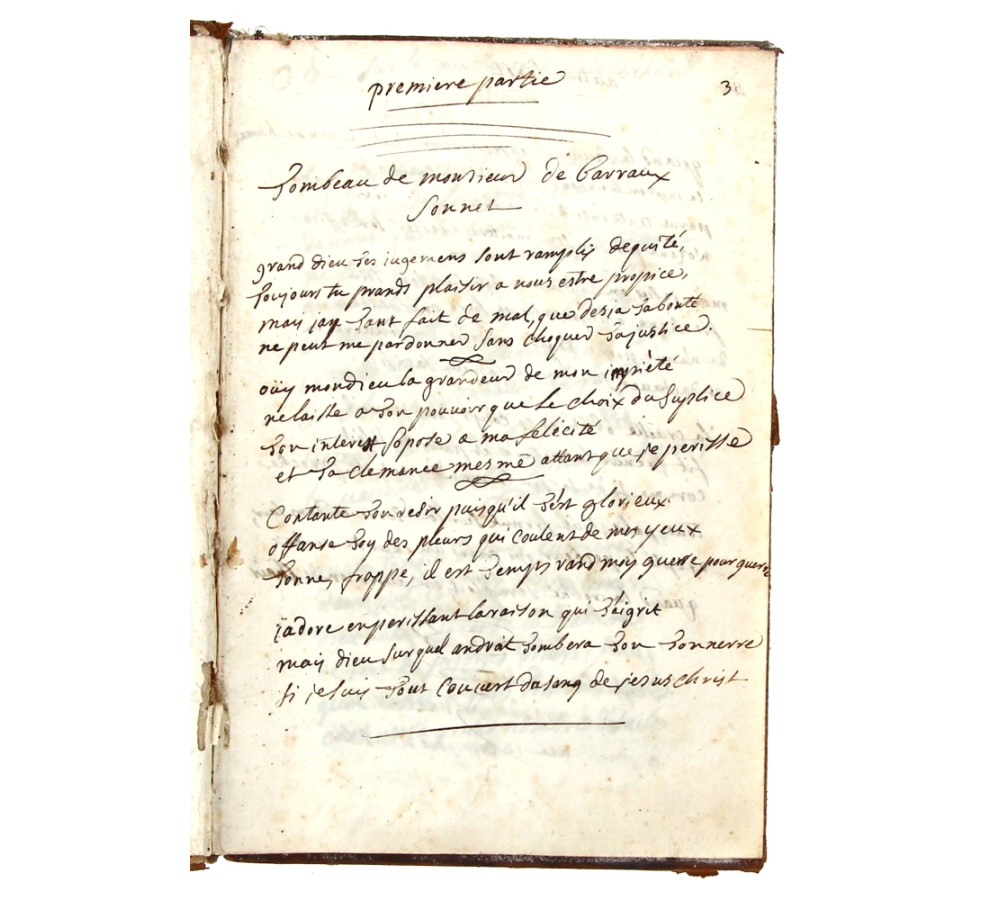 premiere partie
3
Tombeau de monsieur de barraux
Sonnet
grand dieu tes jugemens sont ramplis dequité,
toujours tu prands plaisir a nous estre propice,
mais jay tant fait de mal, que desja ta bonté
ne peut me pardonner sans choquer ta justice.
oüy mon dieu la grandeur de mon impiété
ne laisse a ton pouvoir que le choix du suplice
ton interest sopose a ma felécité
et ta clemance mesme attant que je perisse
Contante ton desir puisqu'il t'est glorieux
offanse toy des pleurs qui coulent de mes yeux
tonne, frappe, il est temps rand moy guerre pour guerre
j'adore en perissant la raison qui t'aigrit
mais dieu sur quel androit tombera ton tonnerre
si je suis tout couvert du sang de jesus christ